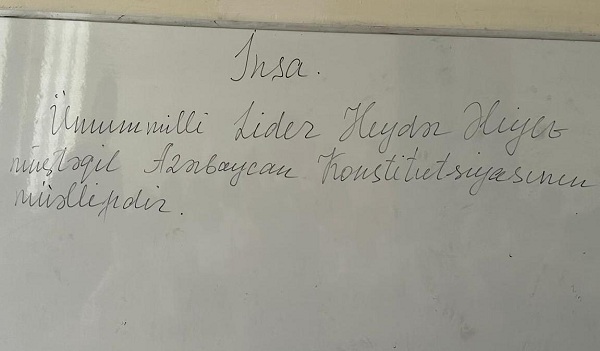 İnsa.
Ümummilli Lider Heydər Əliyev
müstəqil Azərbaycan Konstitutsiyasının
müəllifidir.